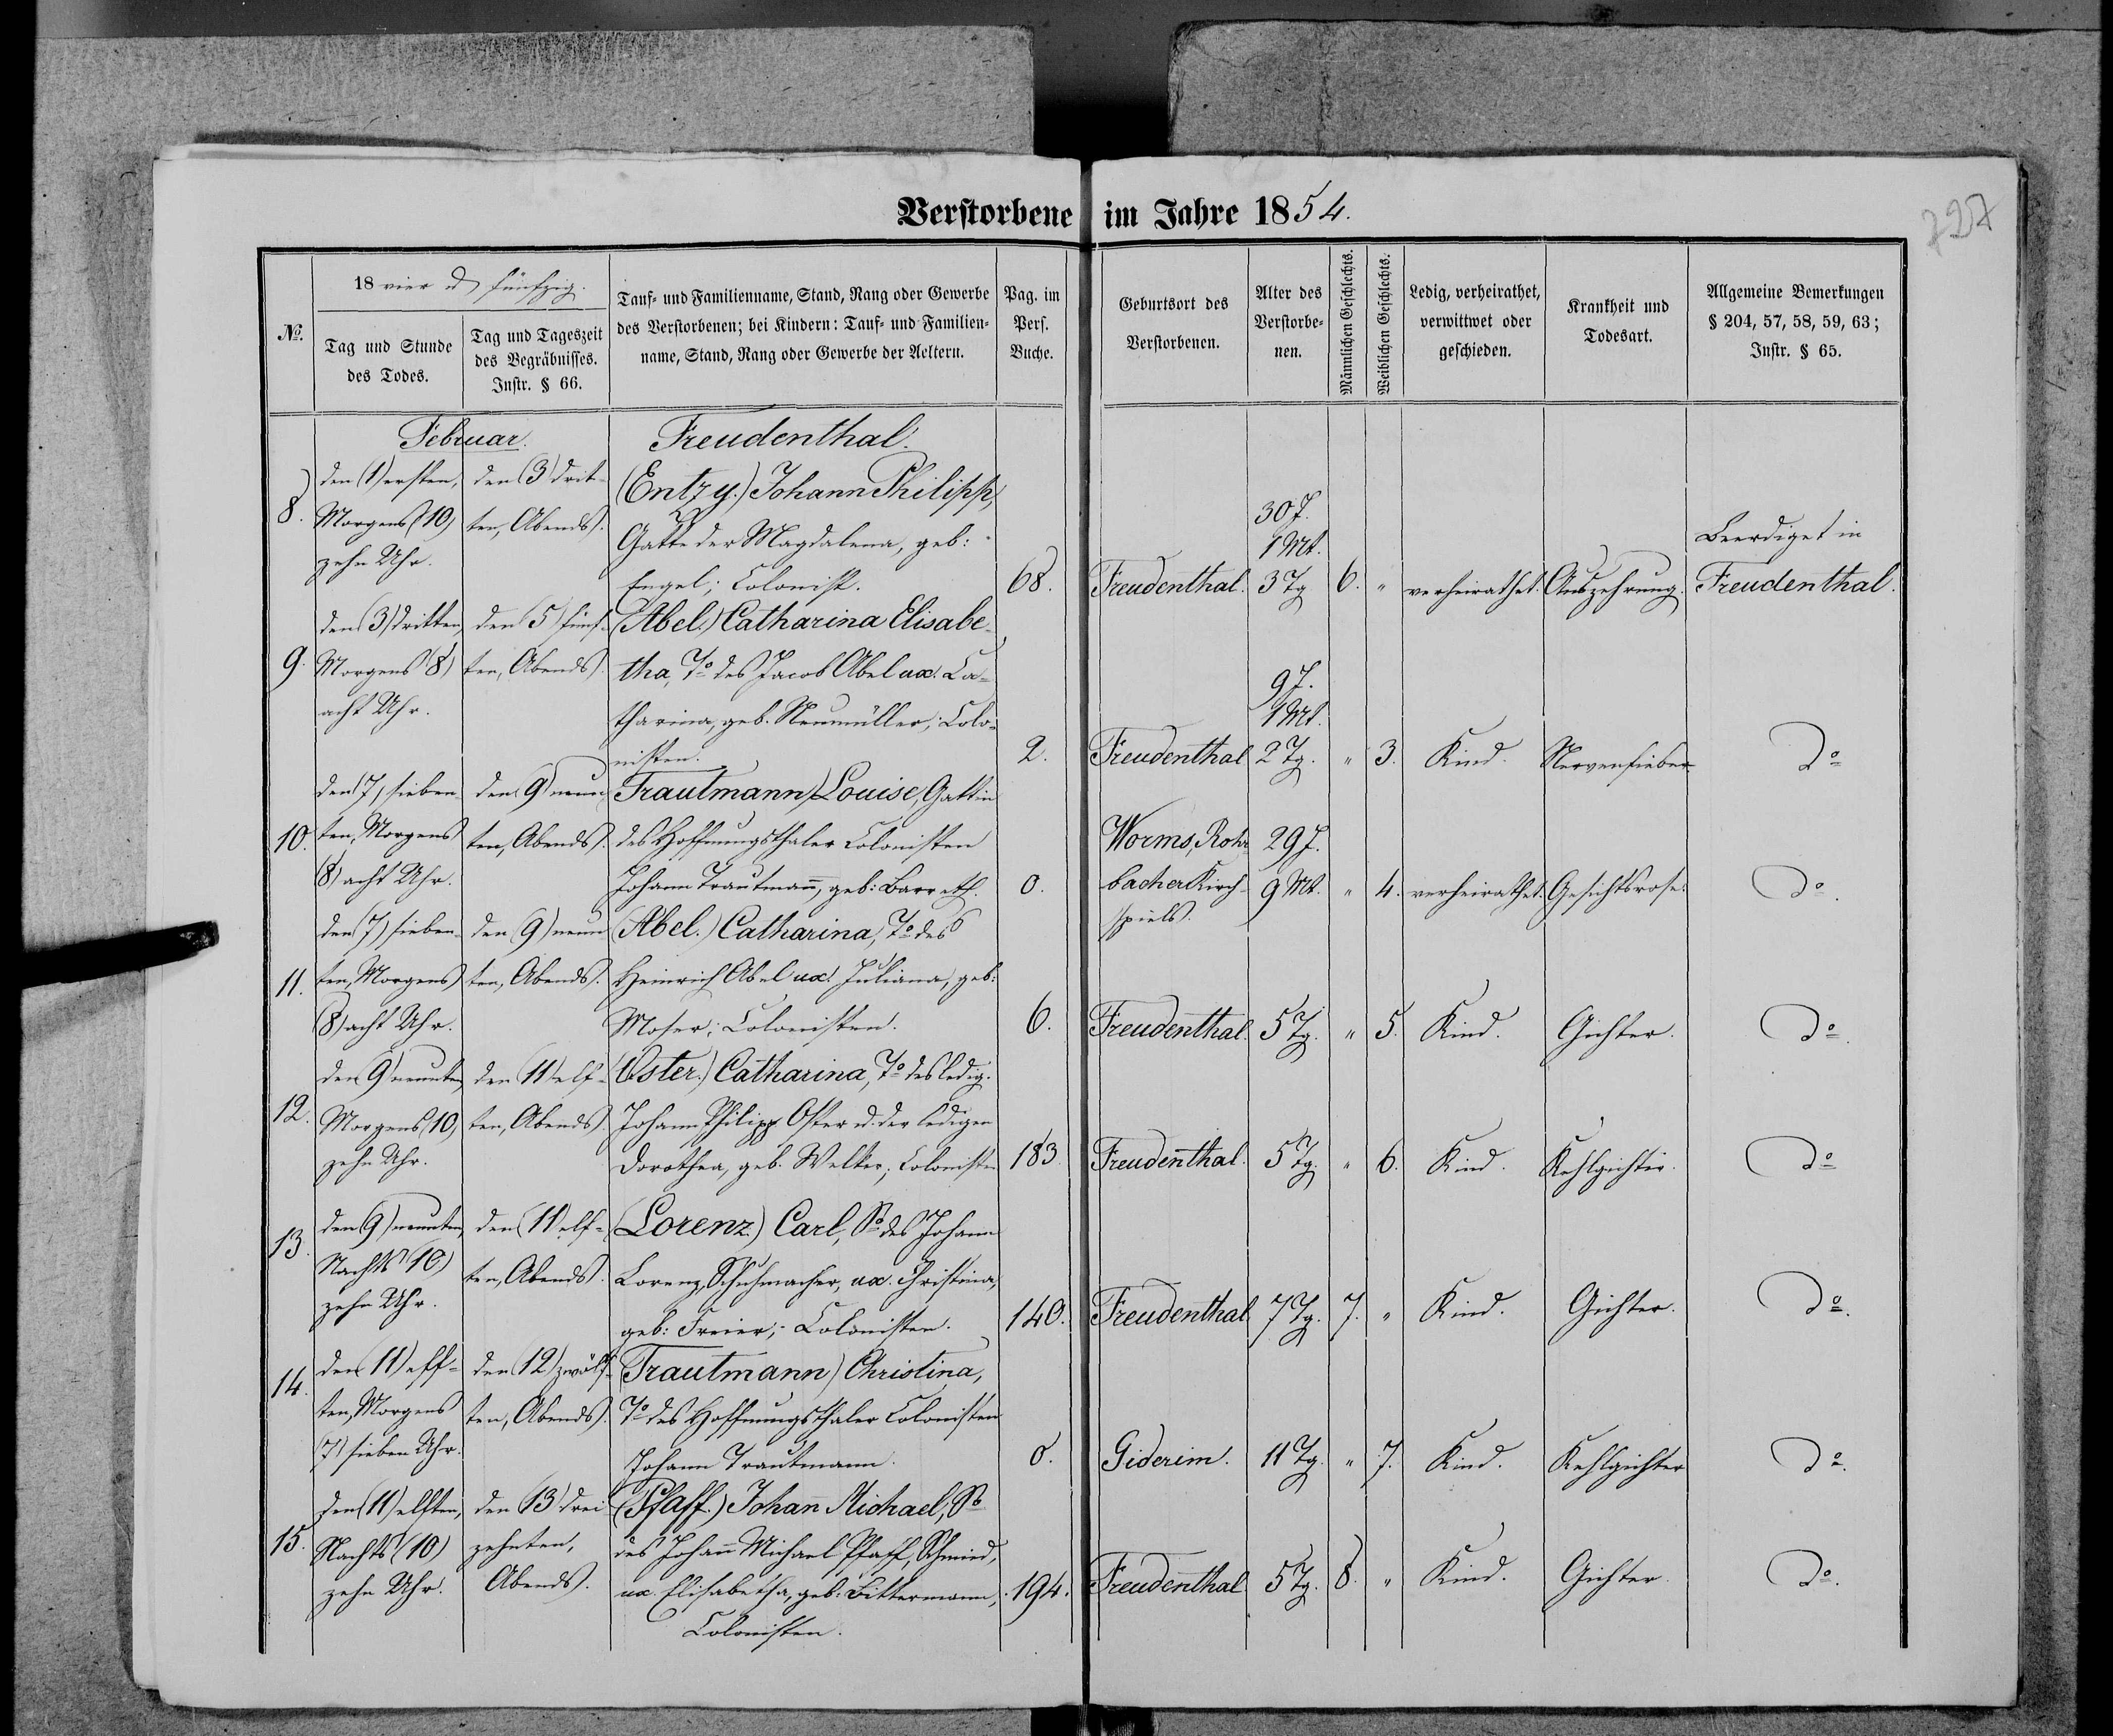 Verstorbene im Jahre 1854.
727
№.
18 vier u fünfzig.
Tag und Stunde
des Todes.
Tag und Tageszeit
des Begräbnisses.
Instr. § 66.
Tauf- und Familienname, Stand, Rang oder Gewerbe
des Verstorbenen; bei Kindern: Tauf- und Familien-
name, Stand, Rang oder Gewerbe der Aeltern.
Pag. im
Pers.
Buche.
Geburtsort des
Verstorbenen.
Alter des
Verstorbe-
nen.
Männlichen Geschlechts.
Weiblichen Geschlechts.
Ledig, verheirathet,
verwittwet oder
geschieden.
Krankheit und
Todesart.
Allgemeine Bemerkungen
§ 204, 57, 58, 59, 63;
Instr. § 65.
Februar.
Freudenthal.
8.
den (1) ersten,
Morgens (10)
zehn Uhr.
den (3) drit-
ten, Abends.
(Entzy.) Johann Philipp,
Gatte der Magdalena, geb:
Engel; Colonist.
68.
Freudenthal.
30 J.
1 Mt.
3 Tg
6.
"
verheirathet.
Auszehrung.
Beerdiget in
Freudenthal.
9.
den (3) dritten,
Morgens (8)
acht Uhr.
den (5) fünf-
ten, Abends.
(Abel.) Catharina Elisabe-
tha, To des Jacob Abel ux. Ca-
tharina, geb. Neumüller; Colo-
nisten.
2.
Freudenthal
9 J.
1 Mt.
2 Tg.
"
3.
Kind.
Nervenfieber.
Do
10.
den (7) sieben-
ten, Morgens
(8) acht Uhr.
den (9) neun-
ten, Abends.
Trautmann) Louise, Gattin
des Hoffnungsthaler Colonisten
Johann Trautmann, geb: Barreth.
0.
Worms, Rohr-
bacher Kirch-
spiels.
29 J.
9 Mt.
"
4.
verheirathet.
Gesichtsrose.
Do.
11.
den (7) sieben-
ten, Morgens
(8) acht Uhr.
den (9) neun-
ten, Abends.
(Abel.) Catharina, To des
Heinrich Abel ux. Juliana, geb:
Moser; Colonisten.
6.
Freudenthal.
5 Tg.
"
5.
Kind.
Gichter.
Do.
12.
den (9) neunten,
Morgens (10)
zehn Uhr.
den (11) elf-
ten, Abends.
(Oster.) Catharina, To des ledig.
Johann Philipp Oster u. der ledigen
Dorothea, geb. Welker; Colonisten
183
Freudenthal.
5 Tg.
"
6.
Kind.
Kehlgichter.
Do
13.
den (9) neunten,
Nachts (10)
zehn Uhr.
den (11) elf-
ten, Abends.
(Lorenz.) Carl, So des Johann
Lorenz, Schuhmacher, ux. Christina,
geb: Freier; Colonisten.
140.
Freudenthal
7 Tg.
7.
"
Kind.
Gichter.
Do.
14.
den (11) elf-
ten, Morgens
(7) sieben Uhr.
den (12) zwölf-
ten, Abends.
Trautmann) Christina,
To des Hoffnungsthaler Colonisten
Johann Trautmann.
0.
Giderim.
11 Tg.
"
7.
Kind.
Kehlgichter
Do.
15.
den (11) elften,
Nachts (10)
zehn Uhr.
den (13) drei-
zehnten,
Abends.
(Pfaff.) Johann Michael, So
des Johann Michael Pfaff, Schmied,
ux. Elisabetha, geb: Bittermann,
Colonisten.
194.
Freudenthal
5 Tg.
8.
"
Kind.
Gichter.
Do.